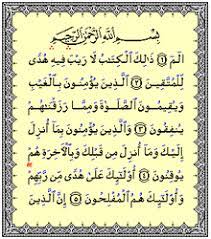 بِسْمِ اللَّهِ الرَّحْمَٰنِ الرَّحِيمِ
الٓمٓ ١ ذَٰلِكَ الْكِتَٰبُ لَا رَيْبَ فِيهِ هُدًى
لِّلْمُتَّقِينَ ٢ الَّذِينَ يُؤْمِنُونَ بِالْغَيْبِ
وَيُقِيمُونَ الصَّلَوٰةَ وَمِمَّا رَزَقْنَٰهُمْ
يُنفِقُونَ ٣ وَالَّذِينَ يُؤْمِنُونَ بِمَا أُنزِلَ
إِلَيْكَ وَمَا أُنزِلَ مِن قَبْلِكَ وَبِالْءَاخِرَةِ هُمْ
يُوقِنُونَ ٤ أُولَٰئِكَ عَلَىٰ هُدًى مِّن رَّبِّهِمْ
وَأُولَٰئِكَ هُمُ الْمُفْلِحُونَ ٥ إِنَّ الَّذِينَ